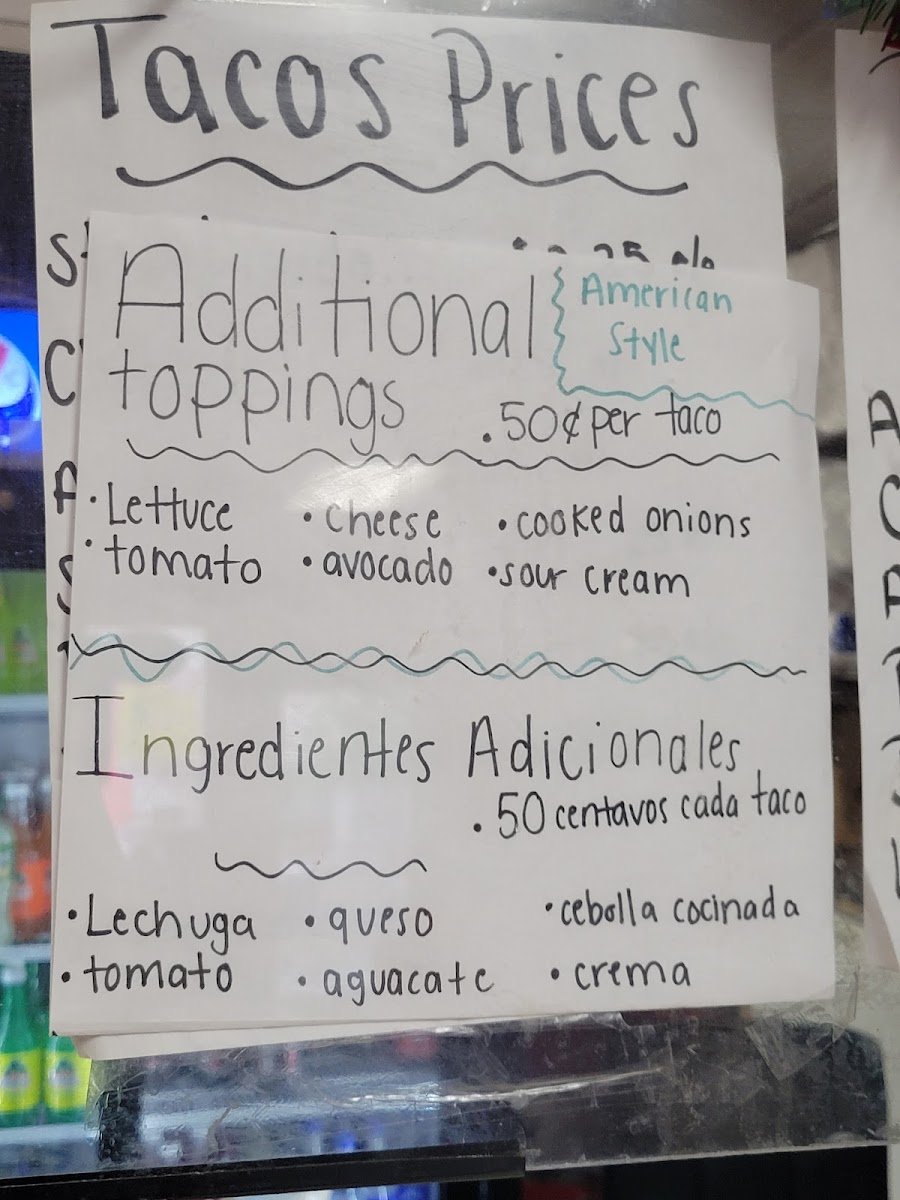 Tacos Prices
Additional
toppings
American
Style
.50¢ per taco
• Lettuce • cheese • cooked onions
• tomato • avocado • sour cream
Ingredientes Adicionales
.50 centavos cada taco
• Lechuga • queso • cebolla cocinada
• tomato • aguacate • crema